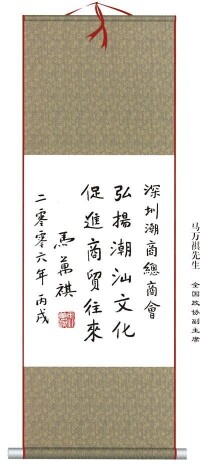 深圳潮商總商會
弘揚潮汕文化
促進商貿往來
馬萬祺
二零零六年丙戌
马万祺先生 全国政协副主席